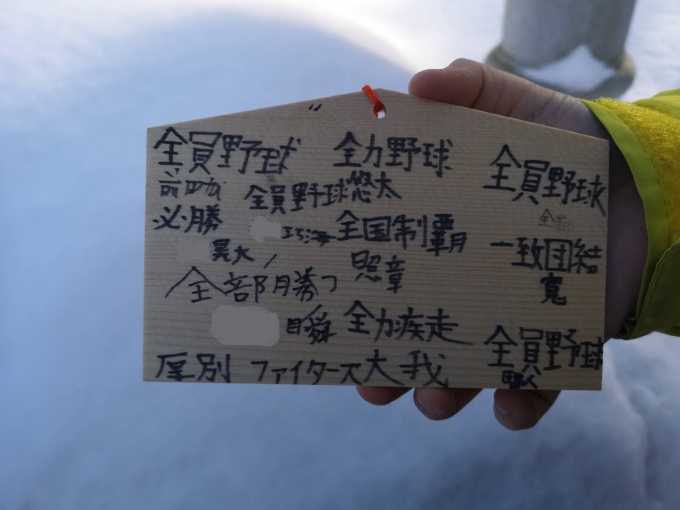 全員野球
全力野球
全員野球
全員野球 悠太
必勝
全国制覇
一致団結
晃大
照章
寛
全部勝つ
瞬
全力疾走
全員野球
厚別 ファイターズ 大我